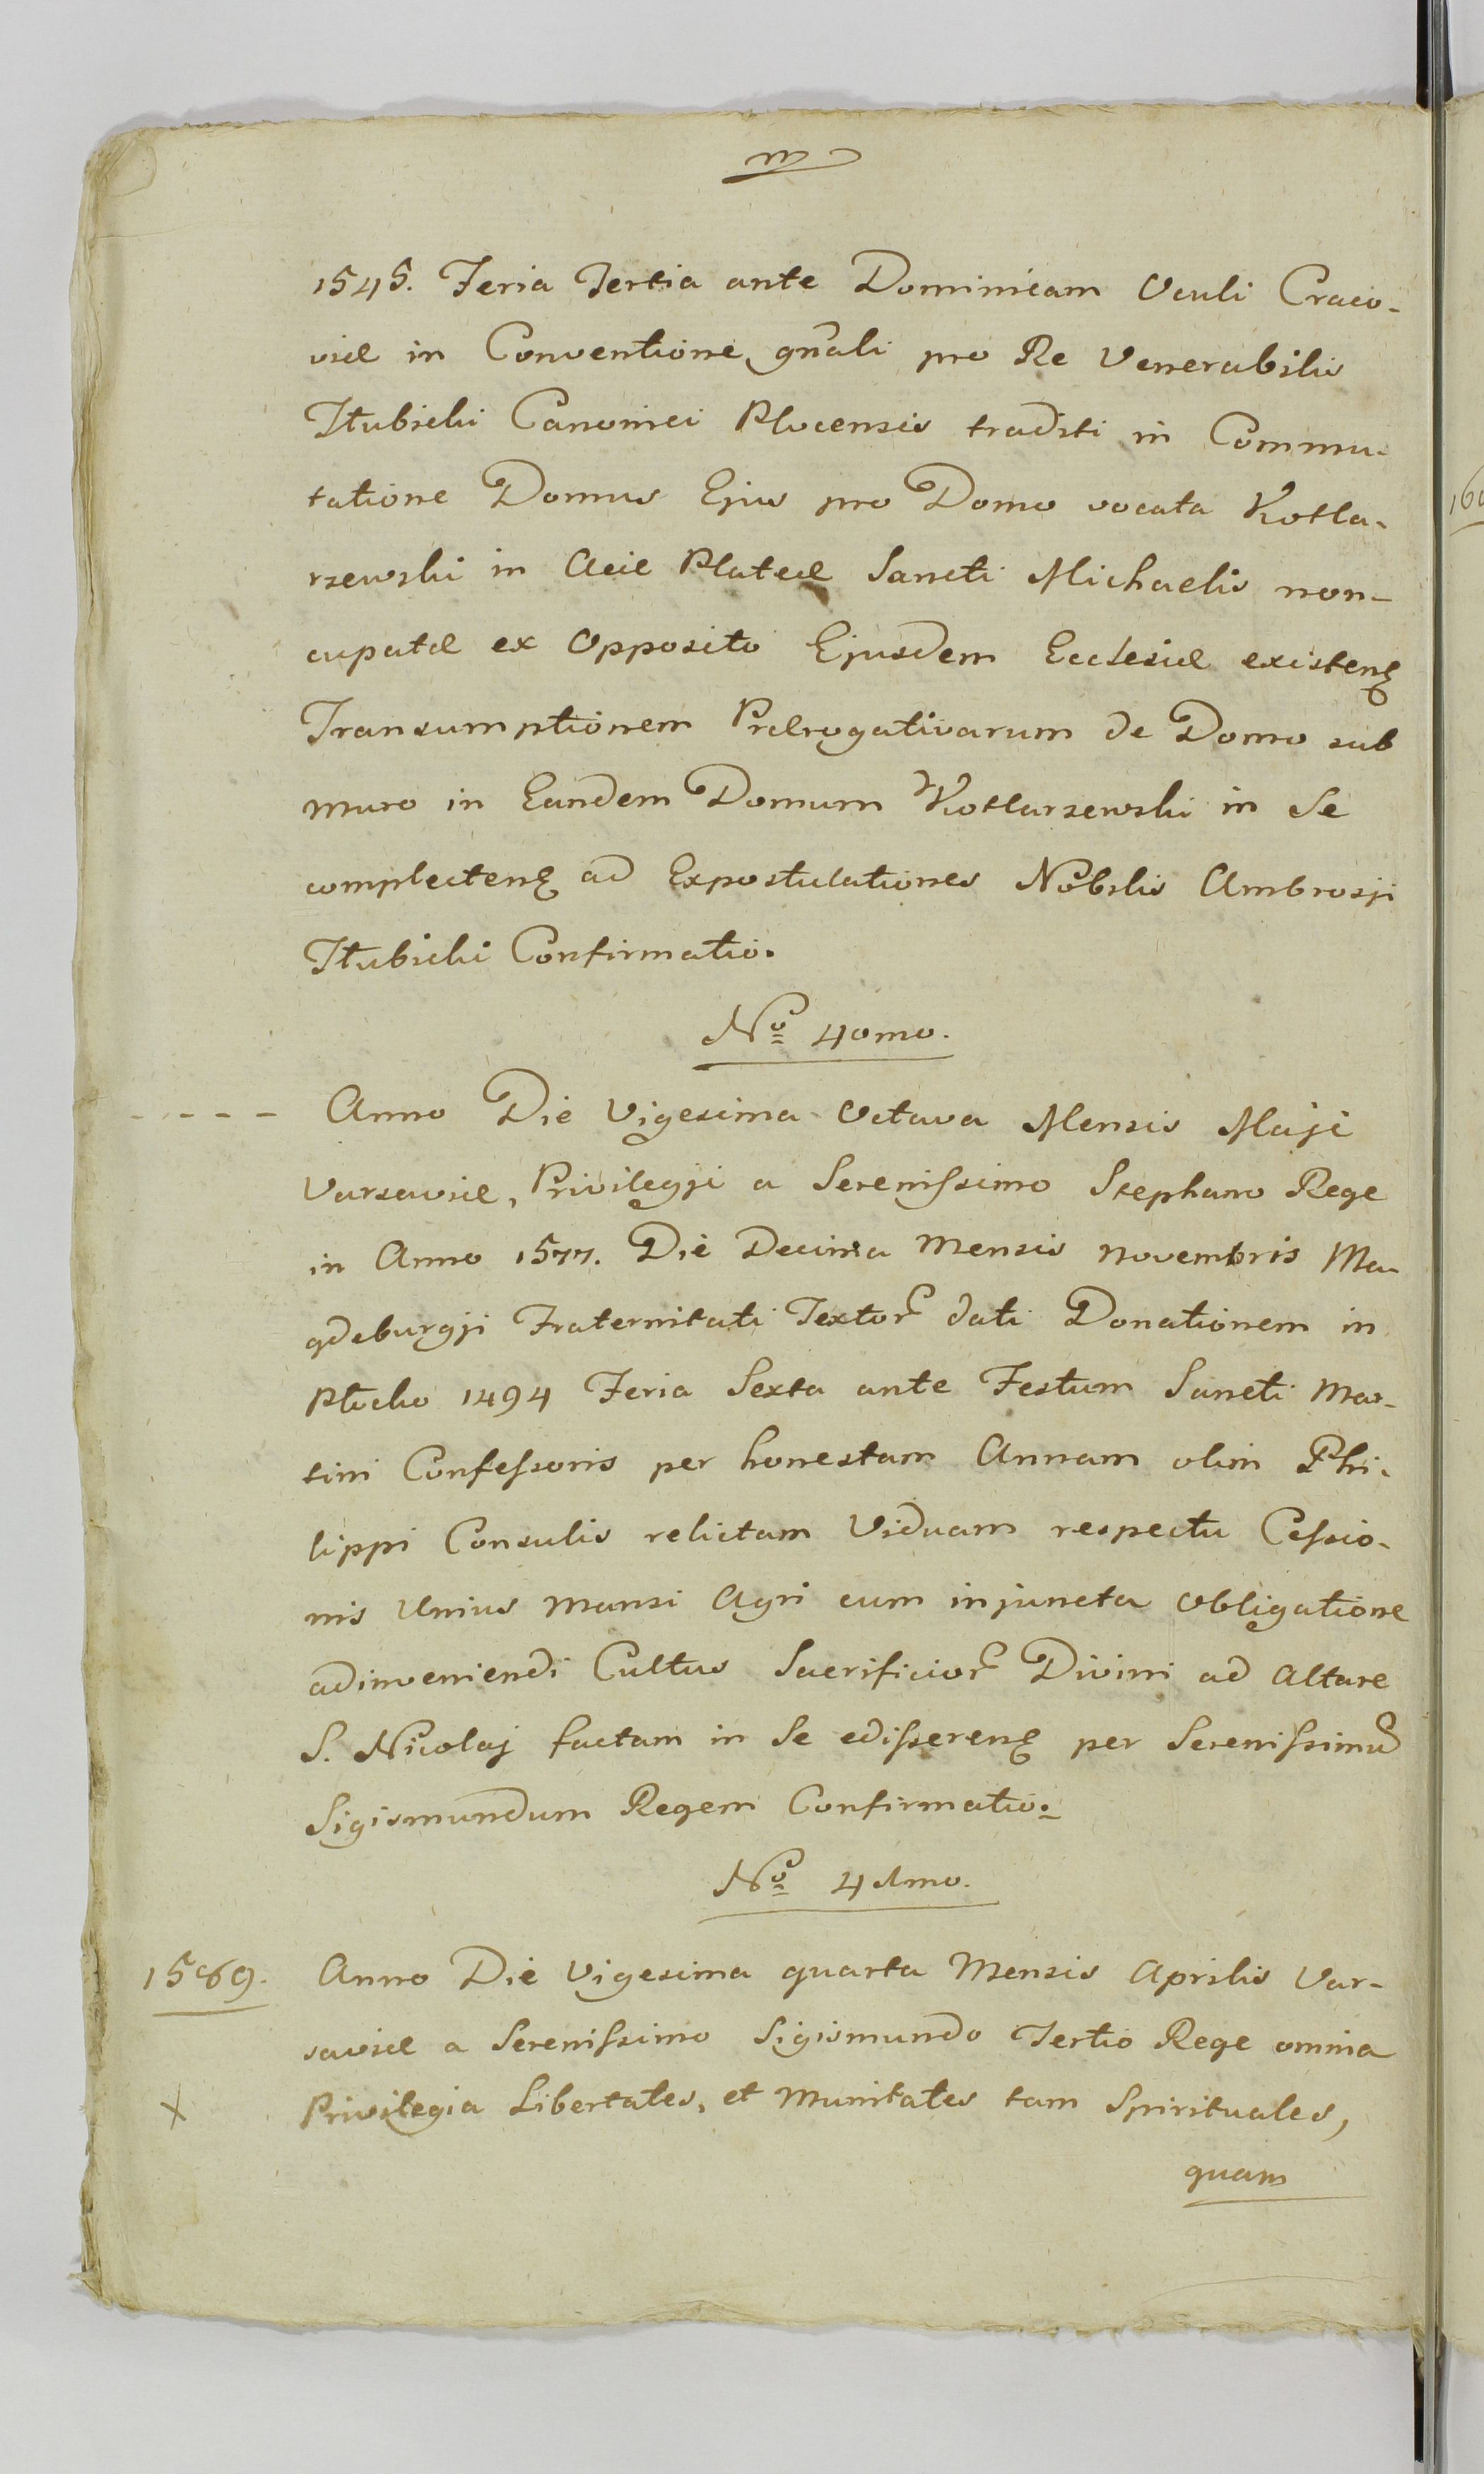 1545. Feria Tertia ante Dominicam Oculi Craco-
viæ in Conventione gn̄ali pro Re Venerabilis
Słubicki Canonici Plocensis traditi in Commu-
tatione Domus Ejus pro Domo vocata Kotla-
rzewski in Acie Plateæ Sancti Michaelis non-
cupatæ ex Opposito Ejusdem Ecclesiæ existenȩ
Transumptionem Prærogativarum de Domo sub
muro in Eandem Domum Kotlarzewski in Se
complectenȩ ad Expostulationes Nobilis Ambrosji
Słubicki Confirmatio.
No 40mo.
- - - - - Anno Die Vigesima Octava Mensis Maji
Varsaviæ, Privilegji a Serenissimo Stephano Rege
in Anno 1577. Die Decima Mensis Novembris Ma-
gdeburgji Fraternitati Textor dati Donationem in
Płocko 1494 Feria Sexta ante Festum Sancti Mar-
tini Confessoris per honestam Annam olim Phi-
lippi Consulis relictam Viduam respectu Cessio-
nis Unius Mansi Agri cum injuncta Obligatione
adinveniendi Cultus Sacrificior Divini ad Altare
S. Nicolaj factam in Se edisserenȩ per Serenissimū
Sigismundum Regem Confirmatio.
No 41mo.
1589. Anno Die Vigesima quarta Mensis Aprilis Var-
saviæ a Serenissimo Sigismundo Tertio Rege omnia
X Privilegia Libertates, et Munitates tam Spirituales,
quam